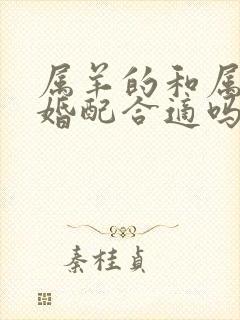 属羊的和属
婚配合适吗
秦桂贞